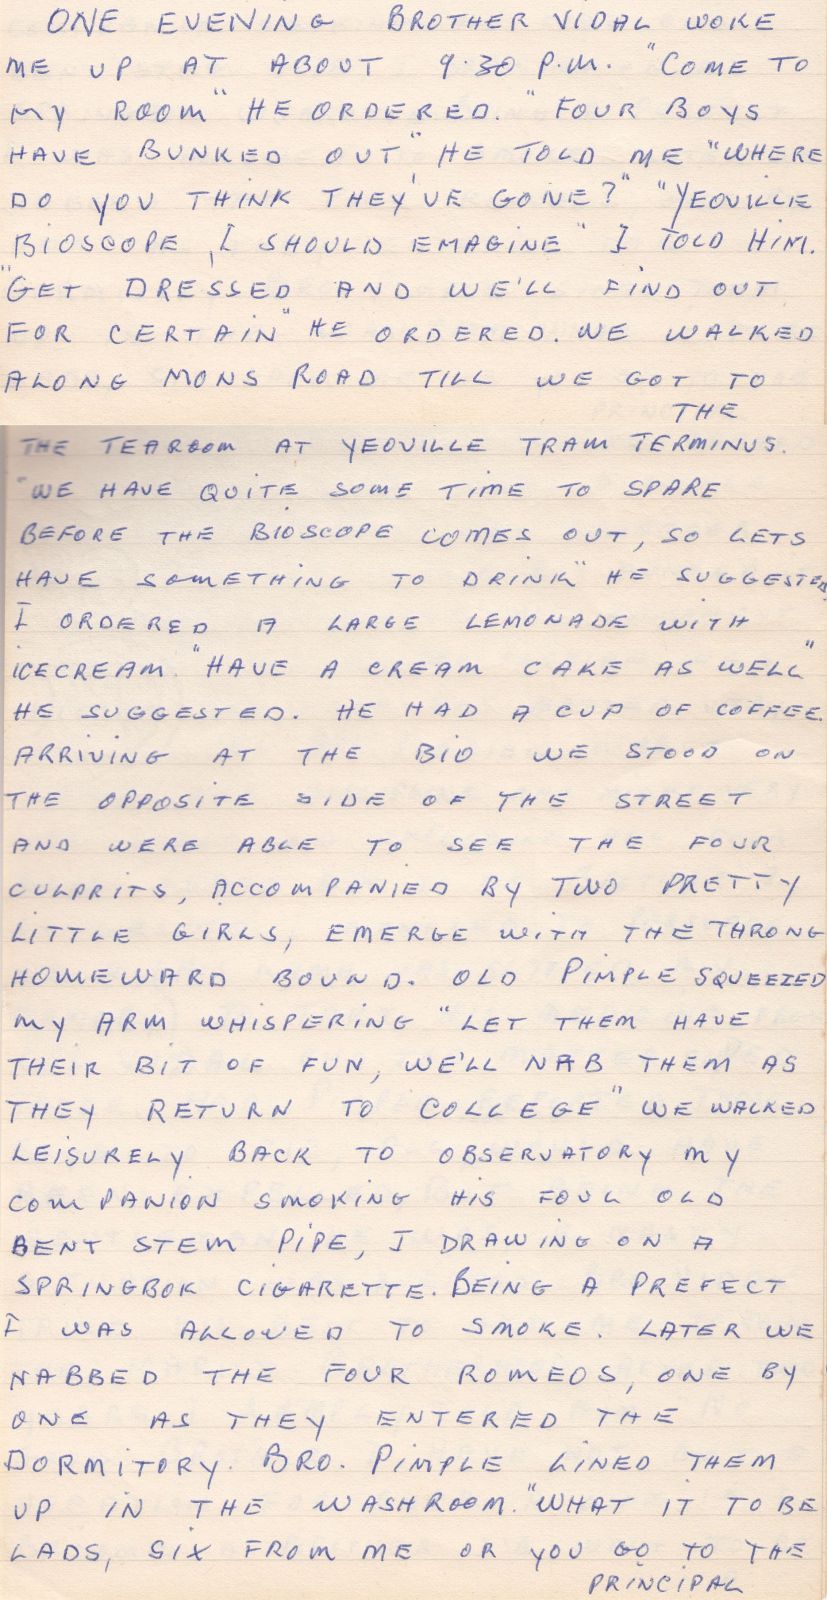 ONE EVENING BROTHER VIDAL WOKE
ME UP AT ABOUT 9.30 P.M. "COME TO
MY ROOM" HE ORDERED. "FOUR BOYS
HAVE BUNKED OUT" HE TOLD ME "WHERE
DO YOU THINK THEY'VE GONE?" "YEOVILLE
BIOSCOPE, I SHOULD EMAGINE" I TOLD HIM.
"GET DRESSED AND WE'LL FIND OUT
FOR CERTAIN" HE ORDERED. WE WALKED
ALONG MONS ROAD TILL WE GOT TO
THE
THE TEAROOM AT YEOVILLE TRAM TERMINUS.
"WE HAVE QUITE SOME TIME TO SPARE
BEFORE THE BIOSCOPE COMES OUT, SO LETS
HAVE SOMETHING TO DRINK" HE SUGGESTED.
I ORDERED A LARGE LEMONADE WITH
ICECREAM. "HAVE A CREAM CAKE AS WELL"
HE SUGGESTED. HE HAD A CUP OF COFFEE.
ARRIVING AT THE BIO WE STOOD ON
THE OPPOSITE SIDE OF THE STREET
AND WERE ABLE TO SEE THE FOUR
CULPRITS, ACCOMPANIED BY TWO PRETTY
LITTLE GIRLS, EMERGE WITH THE THRONG
HOMEWARD BOUND. OLD PIMPLE SQUEEZED
MY ARM WHISPERING "LET THEM HAVE
THEIR BIT OF FUN, WE'LL NAB THEM AS
THEY RETURN TO COLLEGE" WE WALKED
LEISURELY BACK TO OBSERVATORY MY
COMPANION SMOKING HIS FOUL OLD
BENT STEM PIPE, I DRAWING ON A
SPRINGBOK CIGARETTE. BEING A PREFECT
I WAS ALLOWED TO SMOKE. LATER WE
NABBED THE FOUR ROMEOS, ONE BY
ONE AS THEY ENTERED THE
DORMITORY. BRO. PIMPLE LINED THEM
UP IN THE WASHROOM. "WHAT IT TO BE
LADS, SIX FROM ME OR YOU GO TO THE
PRINCIPAL